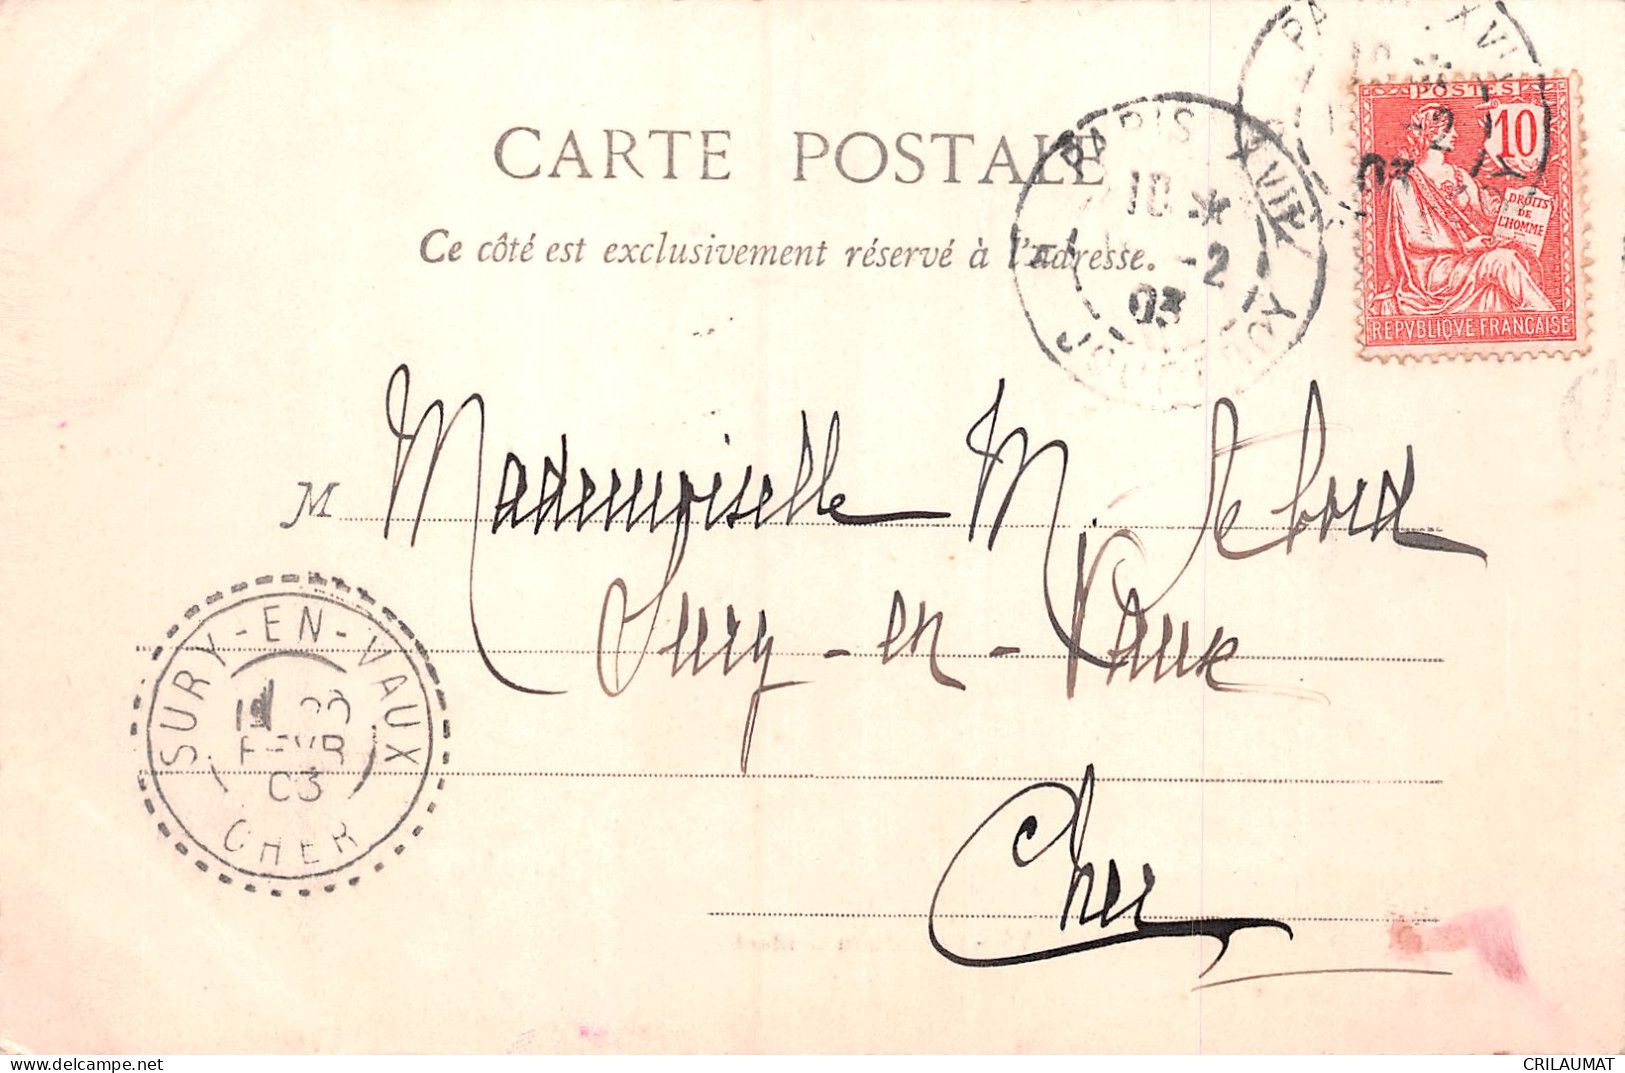 CARTE POSTALE
Ce côté est exclusivement réservé à l'adresse.
PARIS XVI
-2
03
POSTES
10
DROITS
DE
L'HOMME
REPVBLIQVE FRANÇAISE
M Mademoiselle M. Lebord
Sury-en-Vaux
Cher
SURY-EN-VAUX
FEVR
03
CHER
delcampe.net
CRILAUMAT